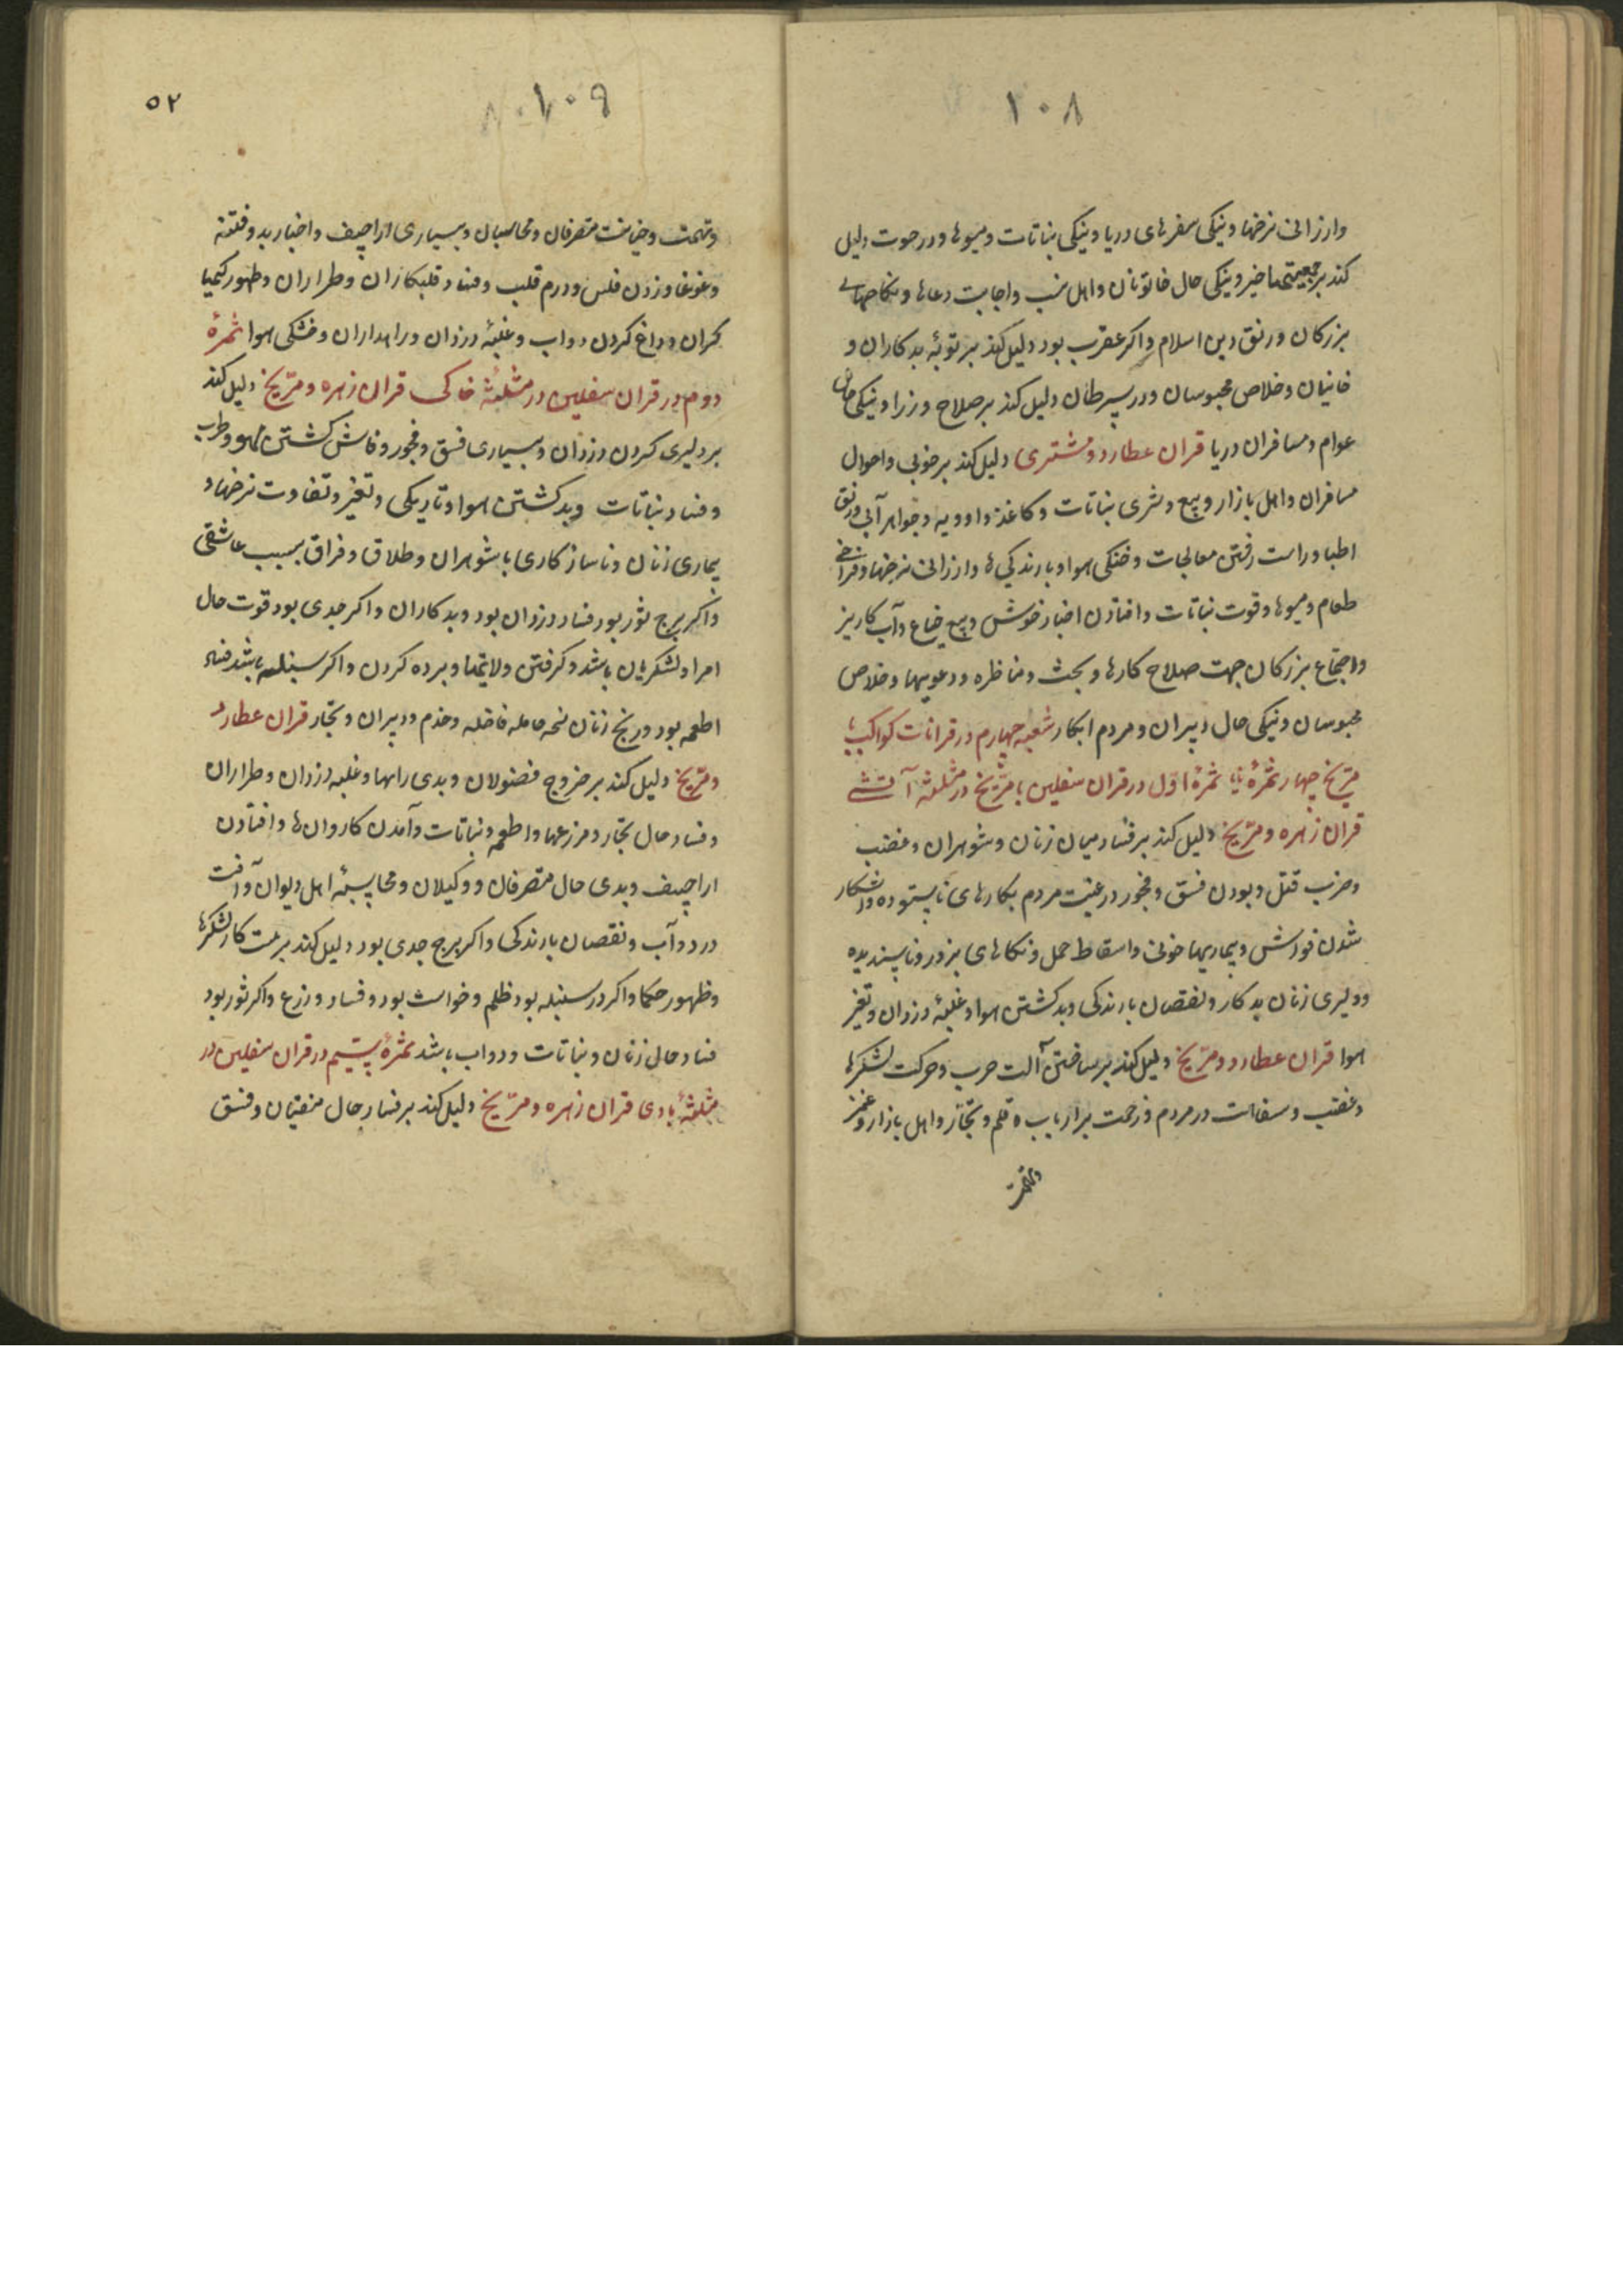 ۱۰۸
وارزانی نرخها و نیکی سفرهای دریا و نیکی نباتات و میوها و در حوت دلیل
کند بر جمعیتها خیر و نیکی حال خاتونان و اهل نسب و اجابت دعاها و نکاحهای
بزرکان و رونق دین اسلام و اکر عقرب بود دلیل کند بر توبهٔ بدکاران و
خائنان و خلاص محبوسان و در سرطان دلیل کند بر صلاح وزرا و نیکی حال
عوام و مسافران دریا قران عطارد و مشتری دلیل کند بر خوبی و احوال
مسافران و اهل بازار و بیع و شری نباتات و کاغذ و ادویه و جواهر آبی و رونق
اطبا و راست رفتن معالجات و خنکی هوا و بارندکی ها و ارزانی نرخها و فراخی
طعام و میوها و قوت نباتات و افتادن اخبار خوش و بیع ضیاع و آب کاریز
و اجتماع بزرکان جهت صلاح کارها و بحث و مناظره و دعویها و خلاص
محبوسان و نیکی حال دبیران و مردم ابتکار شعبه چهارم در قرانات کواکب با
مریخ چهار ثمرهٔ ثمرهٔ اول در قران سفلین با مریخ در مثلثه آتشی
قران زهره و مریخ دلیل کند بر فساد میان زنان و شوهران و غضب
و ضرب قتل و بودن فسق و فجور و رغبت مردم بکارهای ناستوده و آشکار
شدن فواحش و بیماریها خونی و اسقاط حمل و نکاحهای بزور و ناپسندیده
و دلیری زنان بدکار و نقصان بارندکی و بد کشتن هوا و غلبهٔ دزدان و تغیر
هوا قران عطارد و مریخ دلیل کند بر ساختن آلت حرب و حرکت لشکرها
و غضب و سفاهت در مردم و زحمت بر ارباب قلم و تجار و اهل بازار و غمز
و تهمت
۱۰۹
۵۲
و تهمت و خیانت متصرفان و محاسبان و بسیاری اراجیف و اخبار بد و فتنه
و غوغا و زدن فلس و درم قلب و فساد قلبکاران و طراران و ظهور کیمیا
کران و داغ کردن دواب و غلبهٔ دزدان و راهداران و خشکی هوا ثمرهٔ
دوم در قران سفلین در مثلثهٔ خاکی قران زهره و مریخ دلیل کند
بر دلیری کردن دزدان و بسیاری فسق و فجور و فاش کشتن لهو و طرب
و فساد نباتات و بد کشتن هوا و تاریکی و تغیر و تفاوت نرخها و
بیماری زنان و ناسازکاری با شوهران و طلاق و فراق بسبب عاشقی
و اکر برج ثور بود فساد دزدان بود و بدکاران و اکر جدی بود قوت حال
امرا و لشکریان باشد و کرفتن ولایتها و برده کردن و اکر سنبله باشد فساد
اطعمه بود و رنج زنان حامله فاضله و خدم و دبیران و تجار قران عطارد
و مریخ دلیل کند بر خروج فضولان و بدی راهها و غلبه دزدان و طراران
و فساد حال تجار و مزرعها و اطعمه و نباتات و آمدن کاروان ها و افتادن
اراجیف و بدی حال متصرفان و وکیلان و محاسبهٔ اهل دیوان و آفت
در دو آب و نقصان بارندکی و اکر برج جدی بود دلیل کند بر کار لشکرها
و ظهور حکما و اکر در سنبله بود ظلم و بود و فساد و زرع و اکر ثور بود
فساد حال زنان و نباتات و دواب باشد ثمرهٔ سیم در قران سفلین در
مثلثهٔ بادی قران زهره و مریخ دلیل کند بر فساد حال و فسق